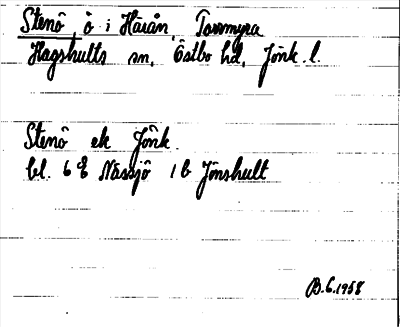 Stenö, ö i Härån, Tarmyra
Hagshults sn, Östbo hd, Jönk. l.
Stenö ek Jönk.
bl. 6 E Nässjö 1 b Jönshult
B.E.1958